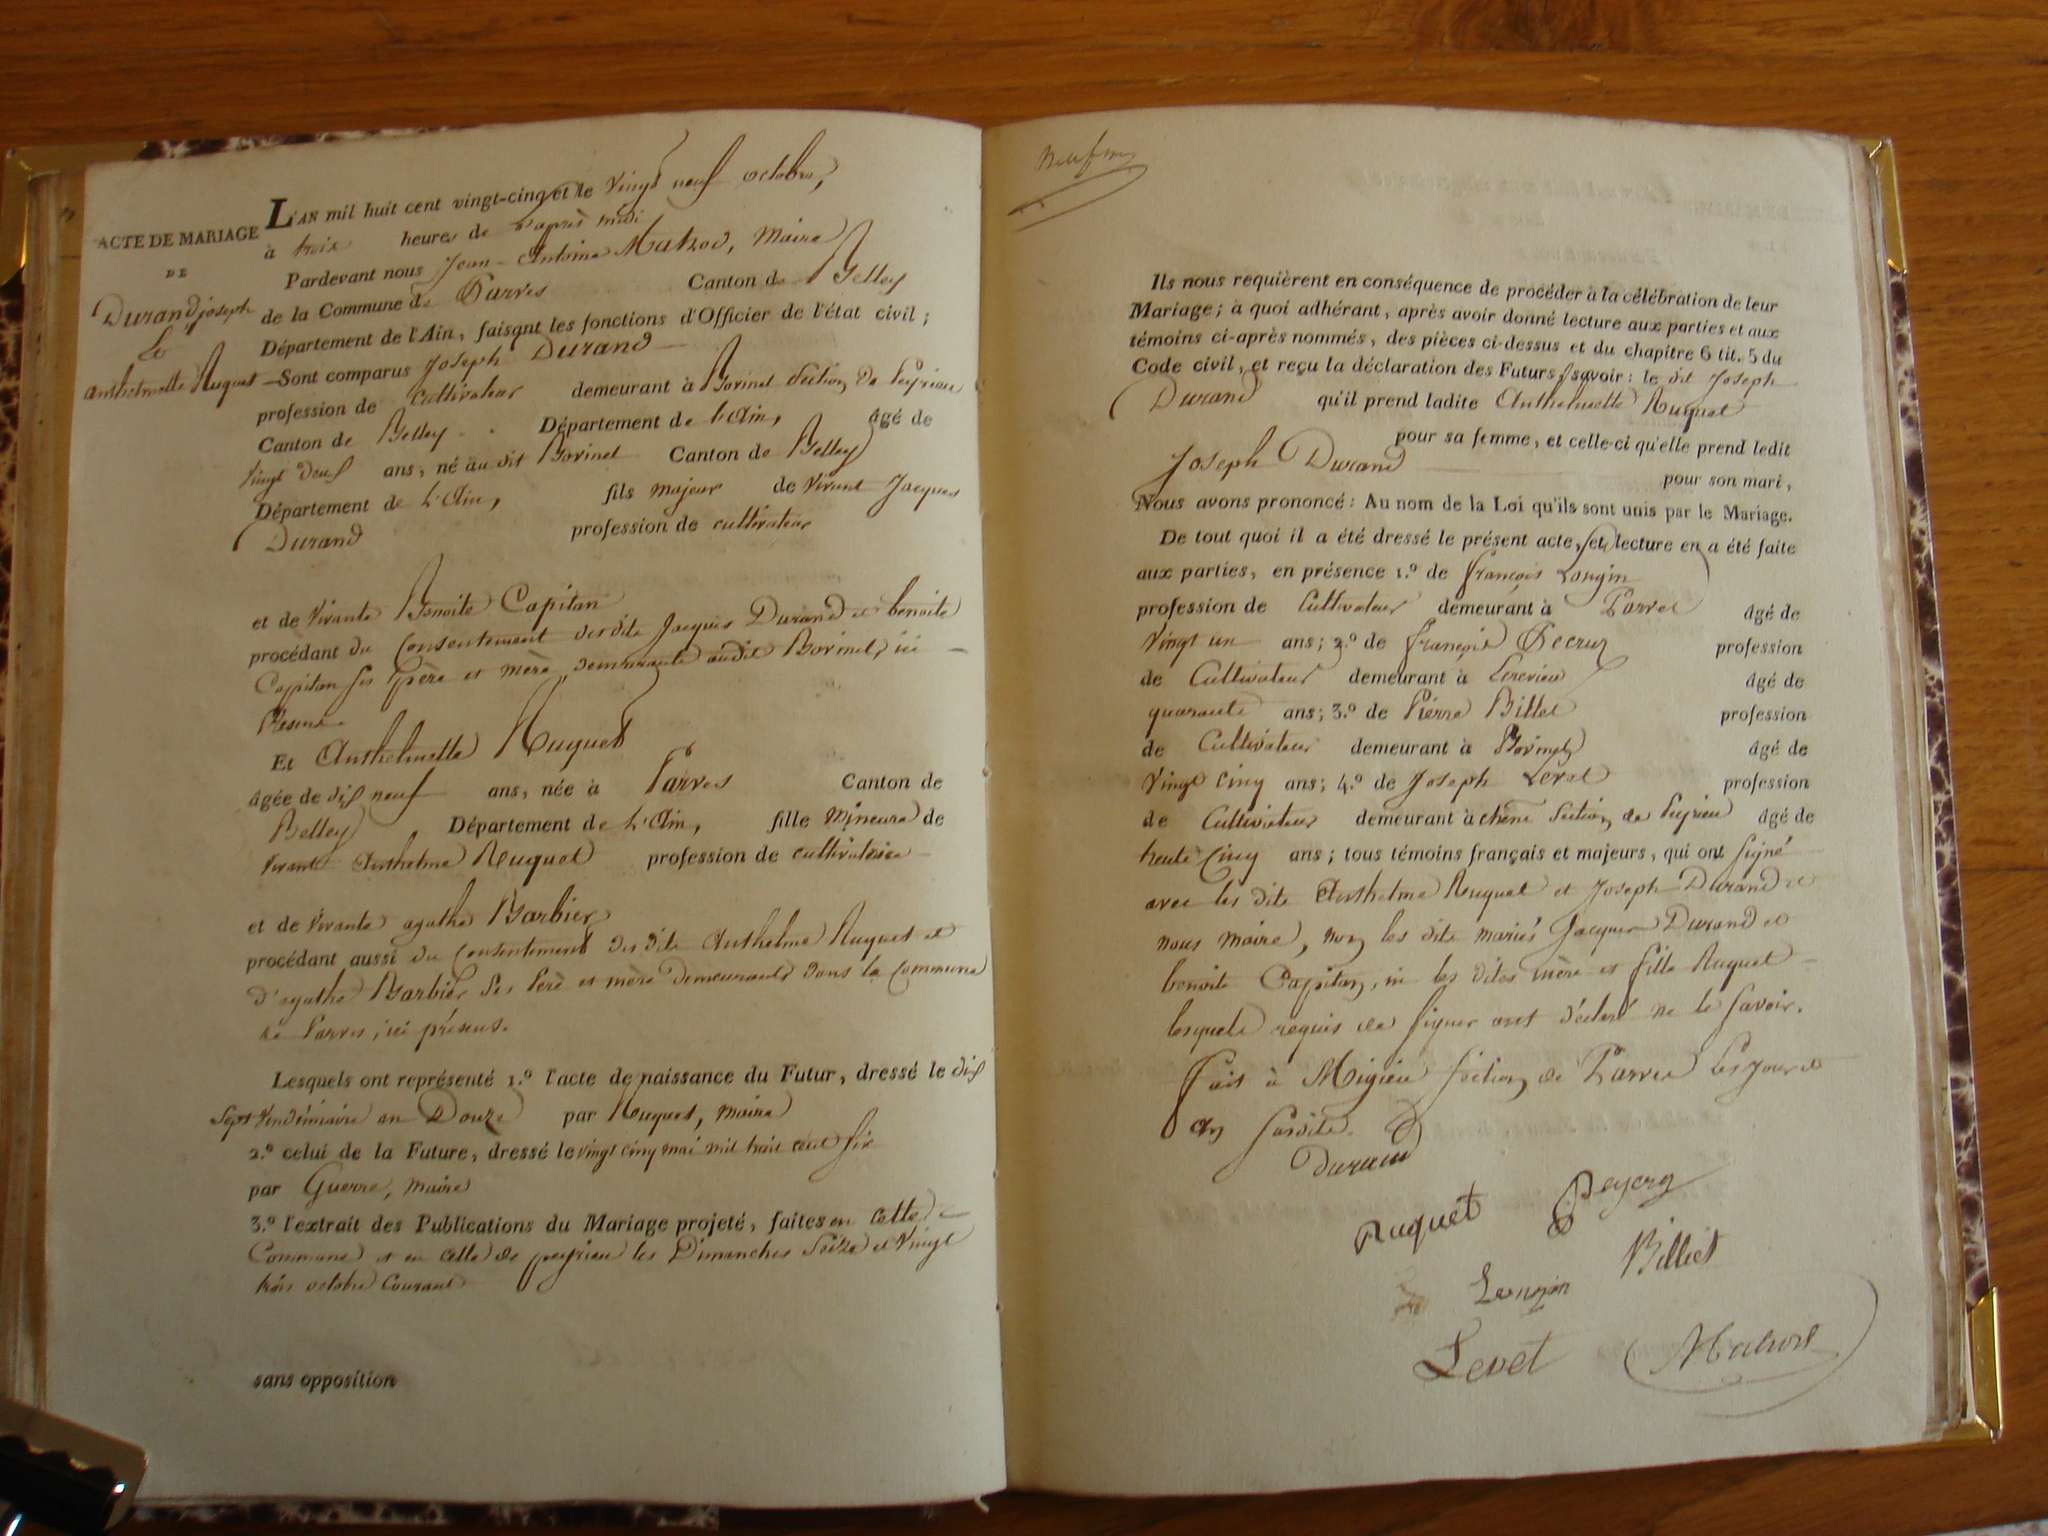 ACTE DE MARIAGE
DE
Durand joseph
et
anthelmette Ruquet
L'AN mil huit cent vingt-cinq et le vingt neuf octobre,
à trois heures de d'après midi
Pardevant nous Jean-Antoine Maire
de la Commune de Parves Canton de Belley
Département de l'Ain, faisant les fonctions d'Officier de l'état civil;
—Sont comparus Joseph Durand —
profession de cultivateur demeurant à Borinet section de Peyrieu
Canton de Belley Département de l'Ain, âgé de
vingt deux ans, né au dit Borinet Canton de Belley
Département de L'Ain, fils majeur de vivant Jacques
Durand profession de cultivateur
et de vivante Benoite Capitan
procédant du Consentement desdits Jacques Durand et benoite
Capitan ses père et mère demeurants audit Borinet, ici —
Présens
Et Anthelmette Ruquet
âgée de dix neuf ans, née à Parves Canton de
Belley Département de L'Ain, fille Mineure de
vivant Anthelme Ruquet profession de cultivateur —
et de vivante agathe Barbier
procédant aussi du Consentement desdits Anthelme Ruquet et
d'agathe Barbier ses père et mère demeurants dans la Commune
de Parves, ici présens.
Lesquels ont représenté 1.º l'acte de naissance du Futur, dressé le dix
sept vendémiaire an Douze par Ruquet, maire
2.º celui de la Future, dressé le vingt cinq mai mil huit cent six
par Guerre, maire
3.º l'extrait des Publications du Mariage projeté, faites en cette
Commune et en celle de peyrieu les Dimanches Seize et vingt
trois octobre Courant
sans opposition
Ils nous requièrent en conséquence de procéder à la célébration de leur
Mariage; à quoi adhérant, après avoir donné lecture aux parties et aux
témoins ci-après nommés, des pièces ci-dessus et du chapitre 6 tit. 5 du
Code civil, et reçu la déclaration des Futurs, savoir: le dit Joseph
Durand qu'il prend ladite Anthelmette Ruquet
pour sa femme, et celle-ci qu'elle prend ledit
Joseph Durand — pour son mari,
Nous avons prononcé: Au nom de la Loi qu'ils sont unis par le Mariage.
De tout quoi il a été dressé le présent acte, et lecture en a été faite
aux parties, en présence 1.º de françois Longin
profession de Cultivateur demeurant à Parves âgé de
vingt un ans; 2.º de françois Decruz profession
de Cultivateur demeurant à âgé de
quarante ans; 3.º de Pierre Billet profession
de Cultivateur demeurant à Borinet âgé de
vingt cinq ans; 4.º de Joseph Levet profession
de Cultivateur demeurant à chêne section de Peyrieu âgé de
trente cinq ans; tous témoins français et majeurs, qui ont signé
avec les dits Anthelme Ruquet et Joseph Durand et
nous maire, non les dits mariés Jacques Durand et
benoite Capitan, ni les dites mère et fille Ruquet —
lesquels requis de signer ont déclaré ne le savoir.
fait à Migieu section de Parves les jour et
an susdits.
Durand
Ruquet
Billiet
Levet